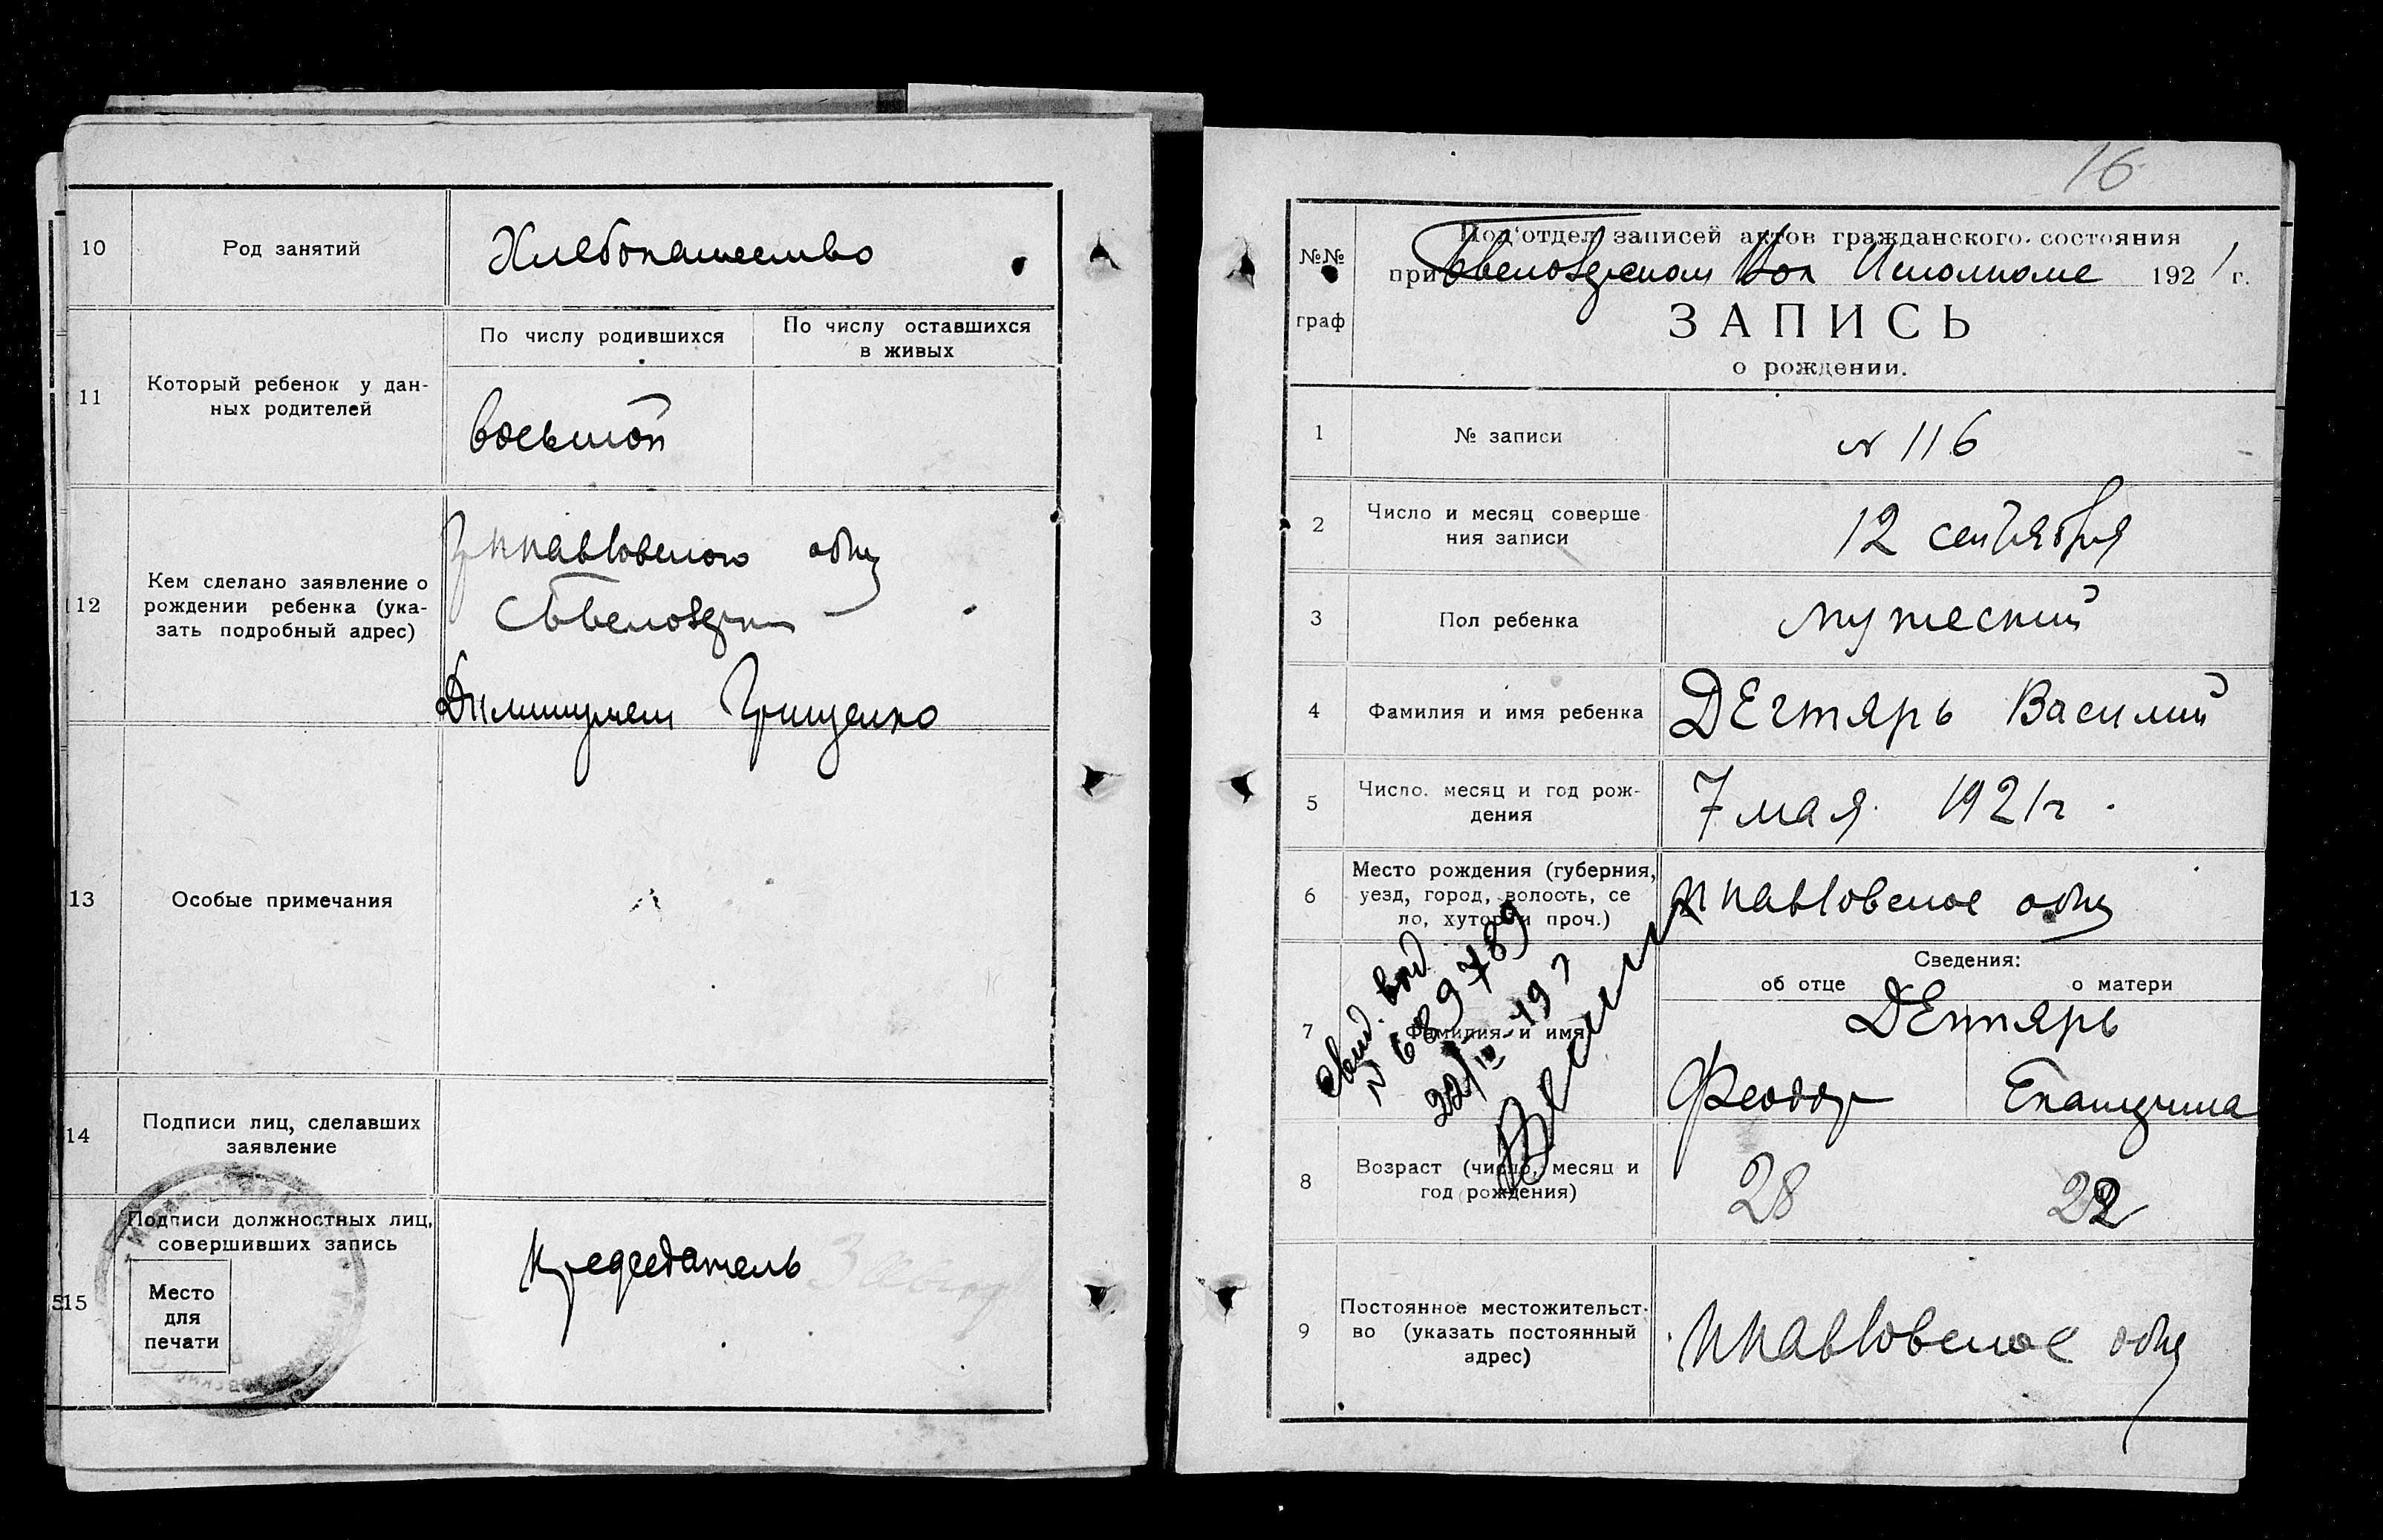 10 Род занятий Хлебопашество
11 Который ребенок у дан-
ных родителей
По числу родившихся
По числу оставшихся
в живых
восьмой
12 Кем сделано заявление о
рождении ребенка (ука-
зать подробный адрес)
Гриценко
13 Особые примечания
14 Подписи лиц, сделавших
заявление
15 Подписи должностных лиц,
совершивших запись
Место
для
печати
Председатель
16
№№
граф
Подотдел записей актов гражданского состояния
при Вол Исполкоме 1921 г.
ЗАПИСЬ
о рождении.
1 № записи № 116
2 Число и месяц соверше
ния записи
12 сентября
3 Пол ребенка мужеский
4 Фамилия и имя ребенка Дегтярь Василий
5 Число. месяц и год рож-
дения
7 мая 1921 г.
6 Место рождения (губерния,
уезд, город, волость, се
ло, хутор и проч.)
Сведения:
об отце о матери
7 Фамилия и имя
Дегтярь
Феодор Екатерина
свид. выд
№ 689789
8 Возраст (число, месяц и
год рождения)
28 22
9 Постоянное местожительст-
во (указать постоянный
адрес)